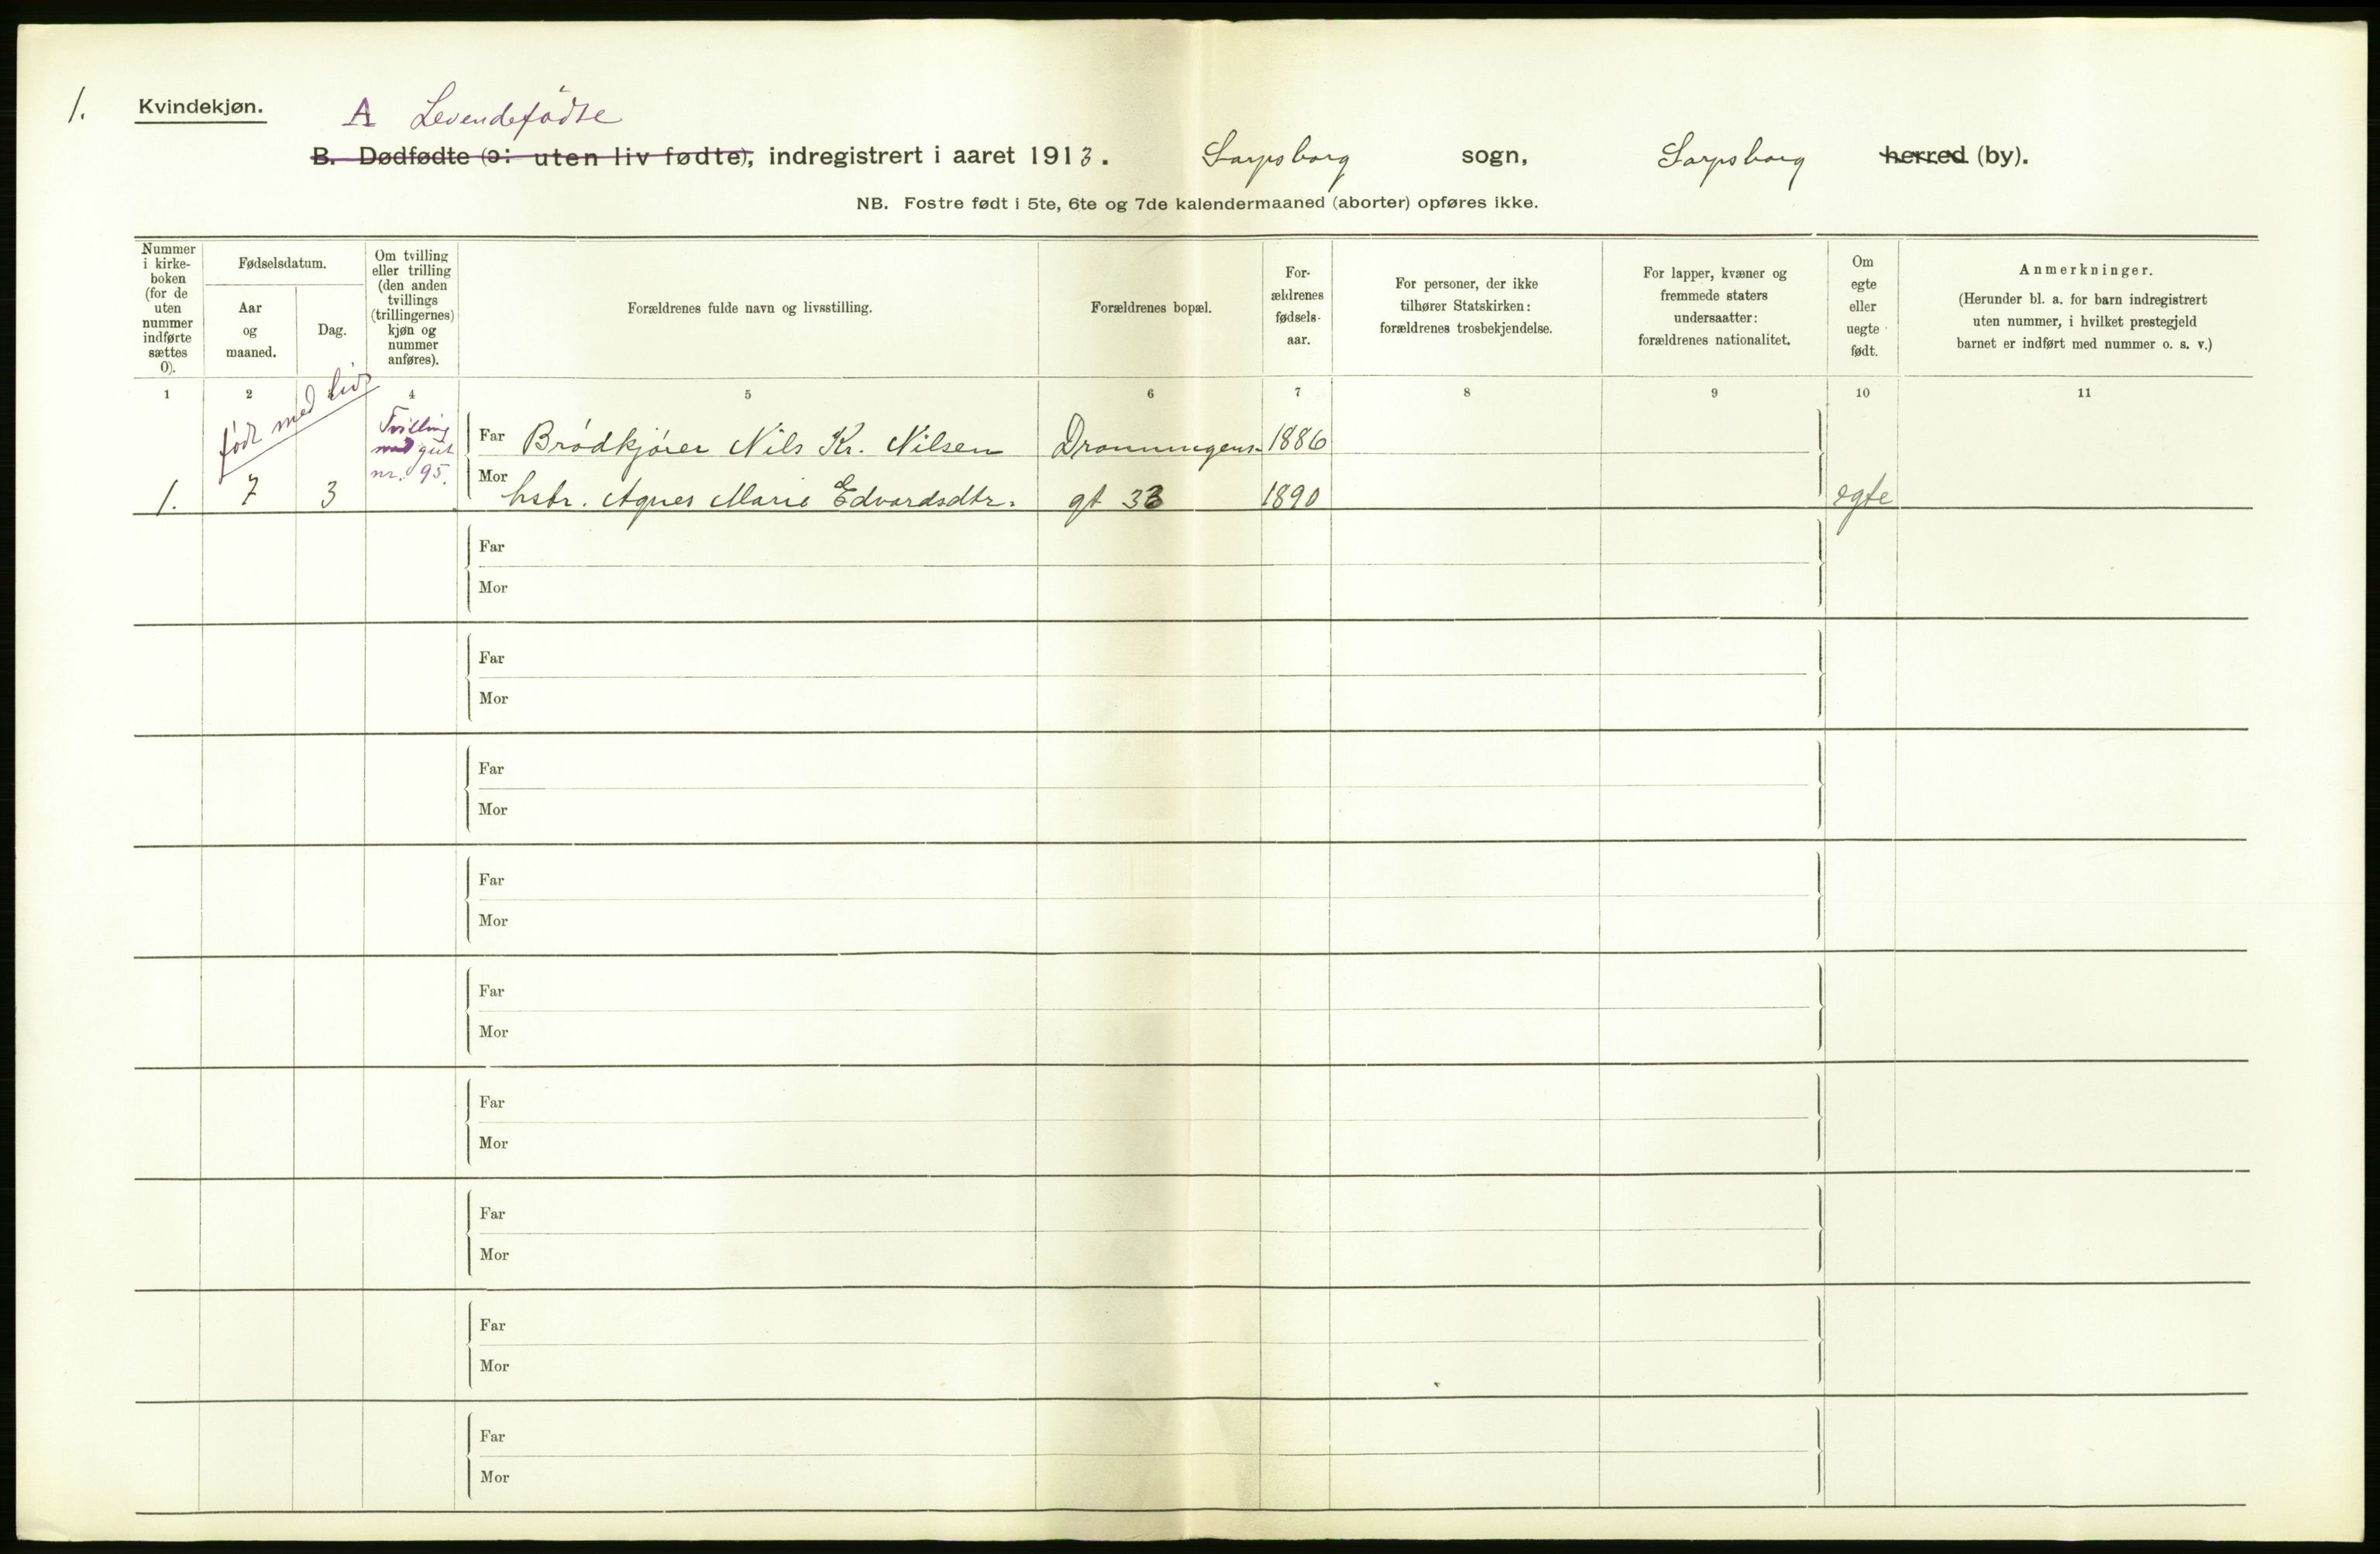 1.
Kvindekjøn.
A Levendefødte
B. Dødfødte (ɔ: uten liv fødte), indregistrert i aaret 1913. Sarpsborg sogn, Sarpsborg herred (by).
NB. Fostre født i 5te, 6te og 7de kalendermaaned (aborter) opføres ikke.
Nummer
i kirke-
boken
(for de
uten
nummer
indførte
sættes
0).
Fødselsdatum.
Aar
og
maaned.
Dag.
Om tvilling
eller trilling
(den anden
tvillings
(trillingernes)
kjøn og
nummer
anføres).
Forældrenes fulde navn og livsstilling.
Forældrenes bopæl.
For-
ældrenes
fødsels-
aar.
For personer, der ikke
tilhører Statskirken:
forældrenes trosbekjendelse.
For lapper, kvæner og
fremmede staters
undersaatter:
forældrenes nationalitet.
Om
egte
eller
uegte
født.
Anmerkninger.
(Herunder bl. a. for barn indregistrert
uten nummer, i hvilket prestegjeld
barnet er indført med nummer o. s. v.)
1 2 4 5 6 7 8 9 10 11
født med liv
Tvilling
med gut
nr. 95.
Far Brödkjörer Nils Kr. Nilsen Dronningens- 1886
1. 7 3 Mor hstr. Agnes Marie Edvardsdtr. gt 33 1890 egte
Far
Mor
Far
Mor
Far
Mor
Far
Mor
Far
Mor
Far
Mor
Far
Mor
Far
Mor
Far
Mor